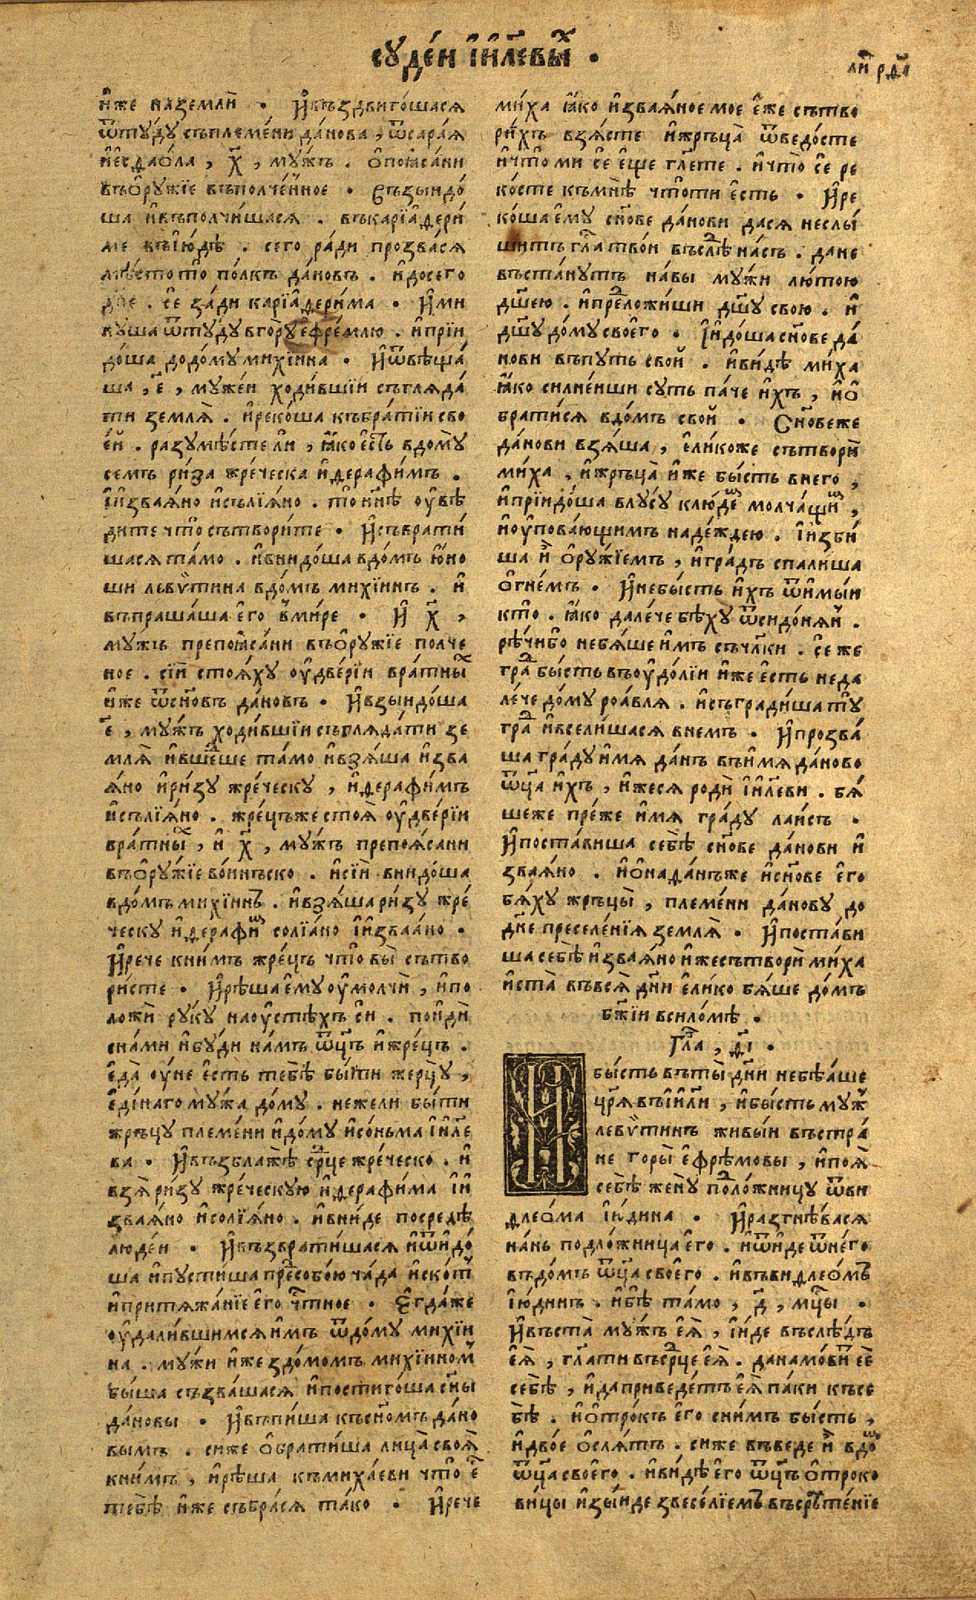 сꙋде́й і҆и҃левы́х .
ли рд҃і
и҆́же на землѝ . И҆ въздвиго́шася
ѿтꙋ́дꙋ съ племе́ни да́нова , ѿ сара́я
и҆ е҆сдао́ла , х҃ , мꙋ́жъ . ѻ҆поя́сани
въ ѻ҆рꙋ́жїе въ полче́нное . Съзыидо́
ша и҆ въполчи́шася . въ карїадери́
ме въ і҆ю́дѣ . сего̀ ра́ди прозва́ся
мѣ́сто то̀ по́лкъ да́новъ . и҆ до сего
дн҃е . сѐ за́ди карїадери́ма . И҆ ми
нꙋ́ша ѿтꙋ́дꙋ в го́рꙋ є҆фре́млю . и҆ прїи
до́ша до до́мꙋ михі́ина . И҆ ѿвѣща́
ша , є҃ , мꙋ́жей ходи́вшїи съгляда́
ти земля̀ . и҆ реко́ша къ бра́тїи сво
е́й . разꙋмѣ́сте ли , ꙗ҆́ко є҆́сть в до́мꙋ
семъ ри́за жре́ческа и҆ дерафи́мъ .
і҆ и҆зва́яно и҆ солїа́но . то̀ нн҃ѣ ᲂу҆вѣ
дите что̀ сътвори́те . И҆ съврати́
шася та́мо . и҆ внидо́ша в до́мъ ю҆́но
ши леѵѵ́тина в до́мъ михі́инъ . и҆
въпраша́ша є҆го̀ в ми́ре . И҆ х҃ ,
мꙋ́жъ препоя́сани въ ѻ҆рꙋ́жїе полче
ное . сїѝ стоя́хꙋ ᲂу҆ две́рїи вра́тных
и҆́же ѿ сн҃овъ да́новъ . И҆ взыидо́ша
є҃ , мꙋ́жъ ходи́вшїи съгляда́ти зе
мля̀ и҆ вше́дше та́мо и҆ взя́ша и҆зва
я́но и҆ ри́зꙋ жре́ческꙋ , и҆ дерафи́мъ
и҆ солїа́но . жре́цъ же стоя̀ ᲂу҆ две́рїи
вра́тных , и҆ х҃ , мꙋ́жъ препоя́сани
въ ѻ҆рꙋ́жїе во́инъско . и҆ сїѝ внидо́ша
в до́мъ михі́инъ . и҆ взя́ша ри́зꙋ жре́
ческꙋ и҆ дерафим солїа́но і҆ и҆зваа́но .
И҆ рече к ни́мъ жре́цъ что̀ вы̀ сътво
ри́сте . И҆ рѣ́ша є҆мꙋ̀ ᲂу҆молчѝ , и҆ по
ложѝ рꙋ́кꙋ на ᲂу҆стѣ́хъ сѝ . поидѝ
с на́ми и҆ бꙋ́ди на́мъ ѿц҃ъ и҆ жре́цъ .
є҆да̀ ᲂу҆́не є҆́сть тебѣ̀ бы́ти жерцꙋ̀ ,
є҆ди́наго мꙋ́жа до́мꙋ . нежели бы́ти
жръцꙋ̀ племе́ни и҆ до́мꙋ и҆ со́ньма і҆и҃ле
ва . И҆ възблажѣ̀ ср҃це жре́ческо . и҆
взя̀ ри́зꙋ жре́ческꙋю и҆ дерафи́ма і҆ и҆
зва́яно и҆ солїа́но . и҆ вни́де посредѣ̀
люде́й . И҆ възврати́шася и҆ ѿидо́
ша и҆ пꙋсти́ша пре́д собою ча́да и҆ ско́т
и҆ притяжа́нїе є҆го̀ ч҃тное . Є҆гда́ же
ᲂу҆дали́вшимся и҆мъ ѿ до́мꙋ михі́и
на . мꙋ́жи и҆́же з до́момъ михі́иномъ
бы́ша съзва́шася и҆ постиго́ша сн҃ы
да́новы . И҆ въпи́ша къ сн҃омъ да́но
вымъ . си́ же ѻ҆брати́ша ли́ца своя̀
к ни́мъ , и҆ рѣ́ша къ миха́еви что̀ є҆́с
тебѣ̀ и҆́же събра́ся та́ко . И҆ рече
ми́ха ꙗ҆́ко и҆зва́яное мое є҆́же сътво
ри́хъ взя́сте и҆ жръца̀ ѿведо́сте
и҆ что̀ ми сѐ є҆ще гл҃ете . и҆ что̀ сѐ ре
ко́сте къ мнѣ̀ что̀ ти є҆́сть . И҆ ре
ко́ша є҆мꙋ̀ сн҃ове да́нови да ся не слы́
шитъ гла́с тво́и въ слѣ́д на́съ . да не
въста́нꙋтъ на вы мꙋ́жи лю́тою
дш҃ею . и҆ преложи́ши дш҃ꙋ свою . и҆
дш҃ꙋ до́мꙋ своего̀ . І҆ и҆до́ша сн҃ове да́
нови въ пꙋ́ть сво́й . и҆ ви́дѣ ми́ха
ꙗ҆́ко силне́иши сꙋ́ть па́че и҆́хъ , и҆ ѻ҆
брати́ся в до́мъ сво́й . Сн҃ове же
да́нови взя́ша , є҆ли́коже сътворѝ
ми́ха . и҆ жръца̀ и҆́же бы́сть в него ,
и҆ прїидо́ша в лꙋ́сꙋ к лю́дем молча́щим ,
и҆ ᲂу҆пова́ющимъ наде́ждею . І҆ и҆зби́
ша и҆́х ѻ҆рꙋ́жїемъ , и҆ гра́дъ спали́ша
ѻ҆гне́мъ . И҆ не бы́сть и҆́хъ ѿимы́и
кто̀ . ꙗ҆́ко дале́че бѣ́хꙋ ѿ сидо́нян .
рѣ́чи бо не бя́ше и҆́мъ съ ч҃лки . се́ же
гра́д бы́сть въ ᲂу҆до́лїи и҆́же є҆́сть неда
ле́че до́мꙋ роа́вля . и҆ съгради́ша тꙋ̀
гра́д и҆ всели́шася в не́мъ . И҆ прозва́
ша гра́дꙋ и҆́мя да́нъ въ и҆́мя да́ново
ѿц҃а и҆́хъ , и҆́же ся родѝ і҆и҃леви . бя́
шеже пре́же и҆́мя гра́дꙋ ла́исъ .
И҆ поста́виша себѣ̀ сн҃ове да́нови и҆
зва́яно . и҆ ѻ҆́надан же и҆ сн҃ове є҆го̀
бя́хꙋ жръцы̀ , племе́ни да́новꙋ до
дн҃е преселе́нїя земля̀ . И҆ поста́ви
ша себѣ̀ и҆зва́яно и҆́же сътворѝ ми́ха
и҆ ста̀ въ вся̀ дн҃и є҆ли́ко бя́ше до́мъ
бж҃їи в силѡ́мѣ .
Гла́в , ѳ҃і .
И бы́сть въ ты̀ дн҃и не бѣаше
цр҃я въ і҆и҃ли , и҆ бы́сть мꙋ́ж
леѵѵ́тинъ живы́и въ стра
не горы̀ є҆фре́мовы , и҆ поя̀
себѣ̀ женꙋ̀ подло́жницꙋ ѿ ви
длео́ма і҆ю́дина . И҆ разгнѣ́вася
на́нь подло́жница є҆го̀ . и҆ ѿиде ѿ него
въ до́мъ ѿц҃а своего̀ . и҆ въ видлео́мъ
і҆ю́динъ . и҆ бѣ̀ та́мо , д҃ , мц҃ы .
И҆ въста̀ мꙋ́жъ є҆я̀ , і҆ и҆де въ слѣ́дъ
є҆я̀ , гл҃ати въ ср҃це є҆я̀ . да намо́вит є҆ѐ
себѣ̀ , и҆ да приведе́тъ є҆я̀ па́ки къ се
бѣ̀ . и҆ ѻ҆́трокъ є҆го̀ с ни́мъ бы́сть ,
и҆ дво́е ѻ҆сля́тъ . си́ же въведе и҆́х в до́м
ѿц҃а своего̀ . и҆ ви́дѣ є҆го̀ ѿц҃ъ ѻ҆троко
вицы и҆зы́иде з весе́лїемъ въ срѣ́тенїе